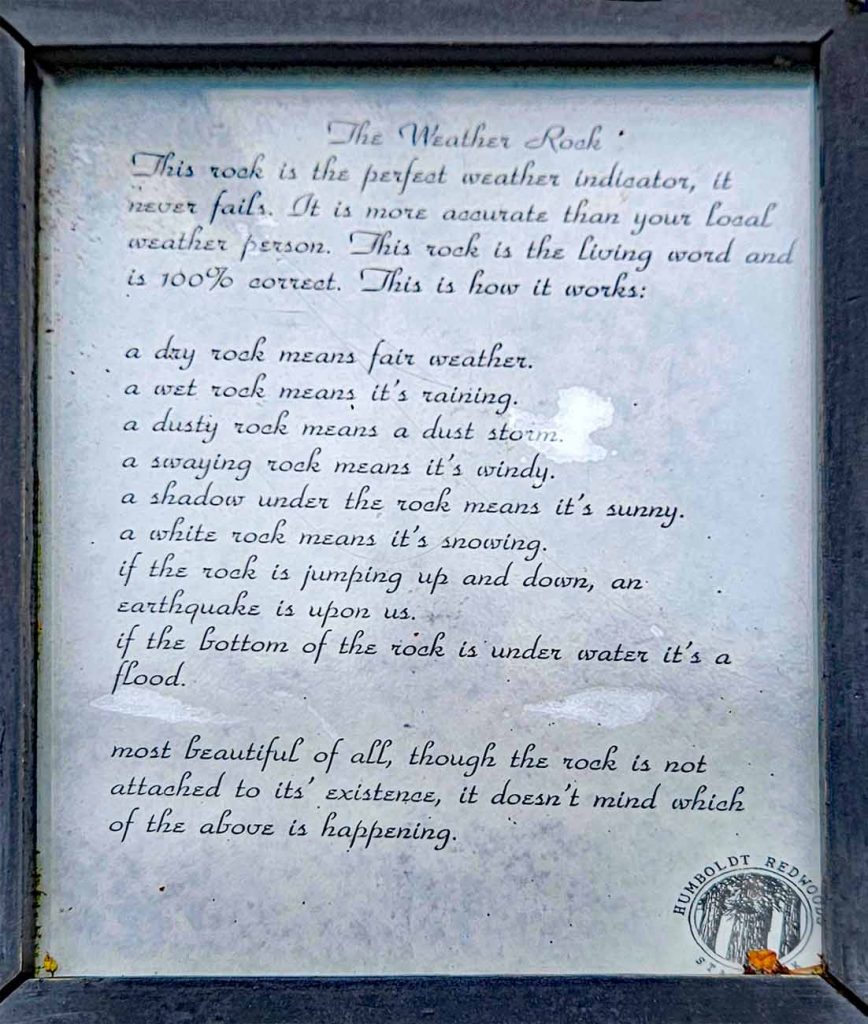 The Weather Rock
This rock is the perfect weather indicator, it
never fails. It is more accurate than your local
weather person. This rock is the living word and
is 100% correct. This is how it works:
a dry rock means fair weather.
a wet rock means it's raining.
a dusty rock means a dust storm.
a swaying rock means it's windy.
a shadow under the rock means it's sunny.
a white rock means it's snowing.
if the rock is jumping up and down, an
earthquake is upon us.
if the bottom of the rock is under water it's a
flood.
most beautiful of all, though the rock is not
attached to its' existence, it doesn't mind which
of the above is happening.
HUMBOLDT REDWOODS